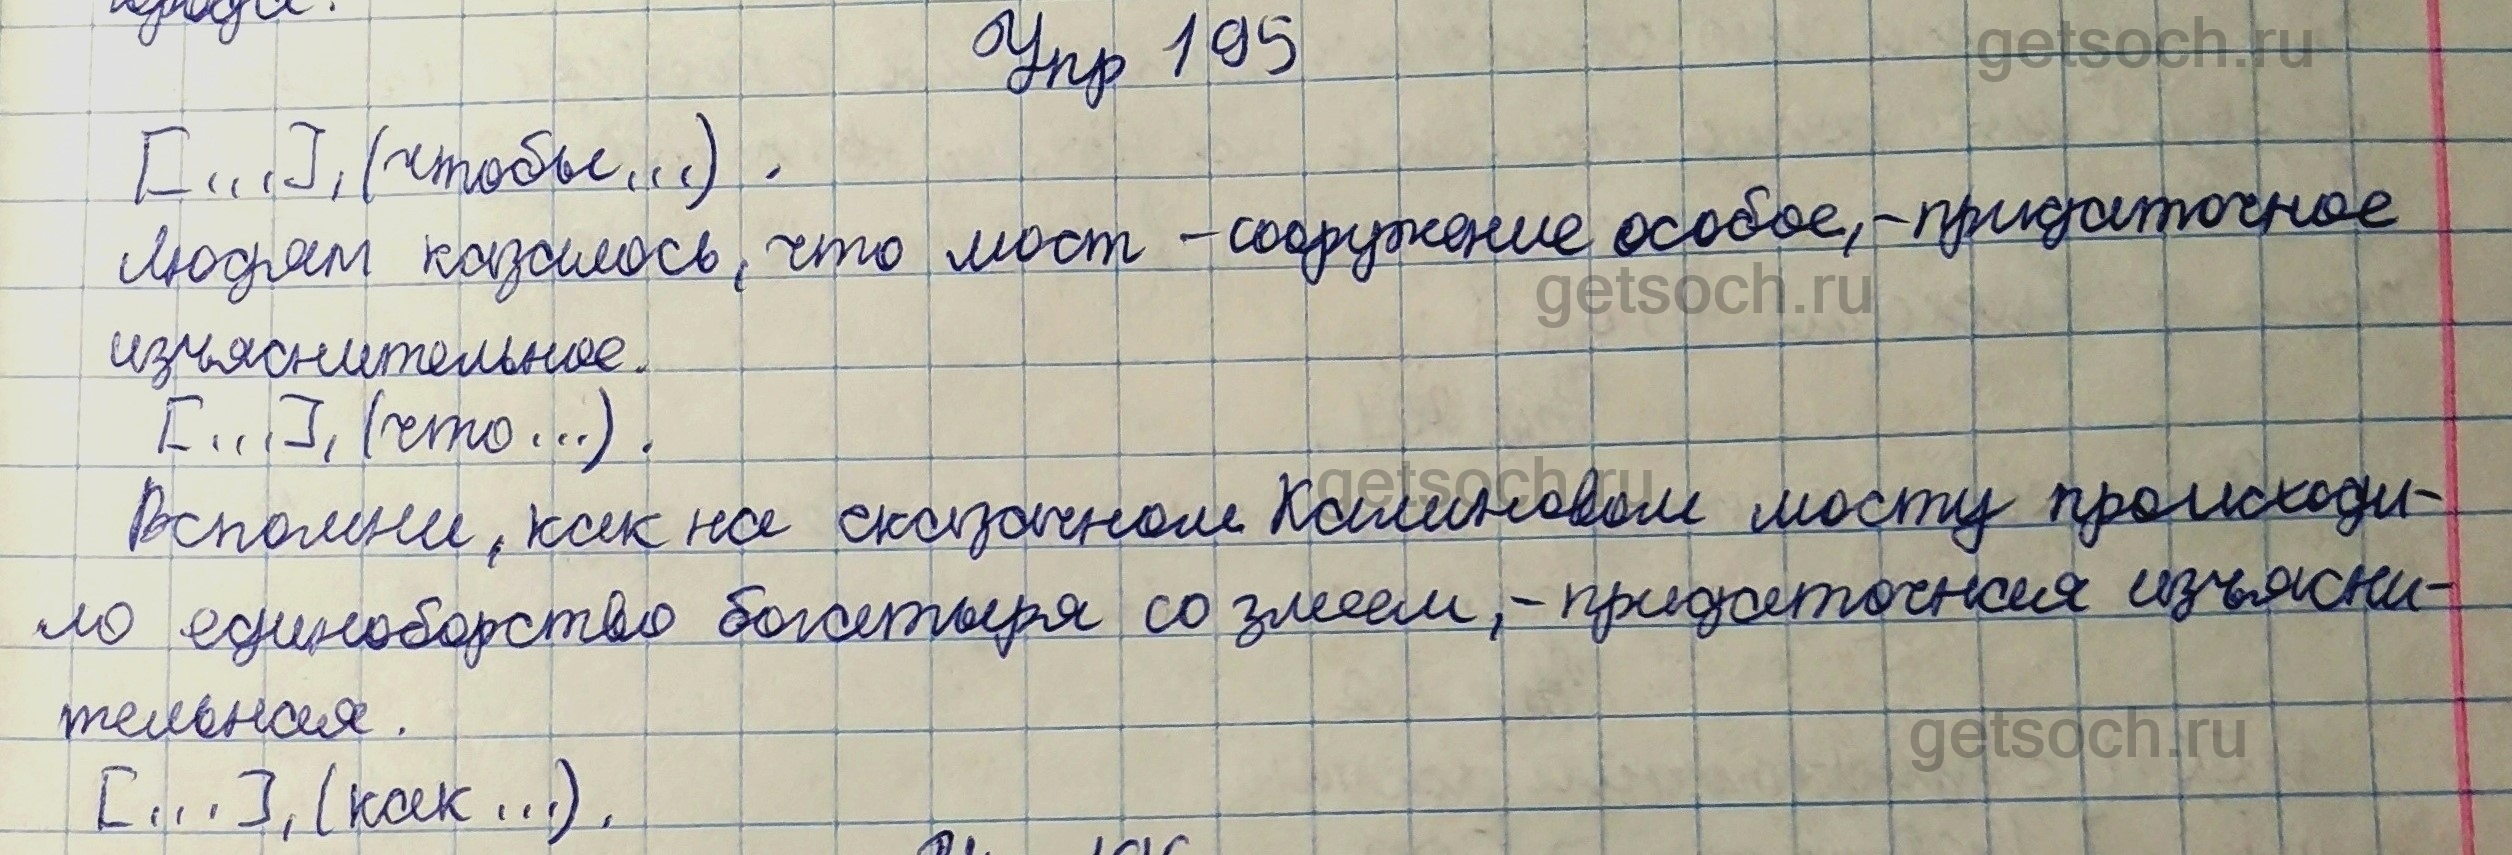 Упр 195
getsoch.ru
[...], (чтобы...).
Людям казалось, что мост - сооружение особое, - придаточное
getsoch.ru
изъяснительное.
[...], (что...).
getsoch.ru
Вспомни, как на сказочном Калиновом мосту происходи-
ло единоборство богатыря со змеем, - придаточная изъясни-
тельная.
getsoch.ru
[...], (как...).